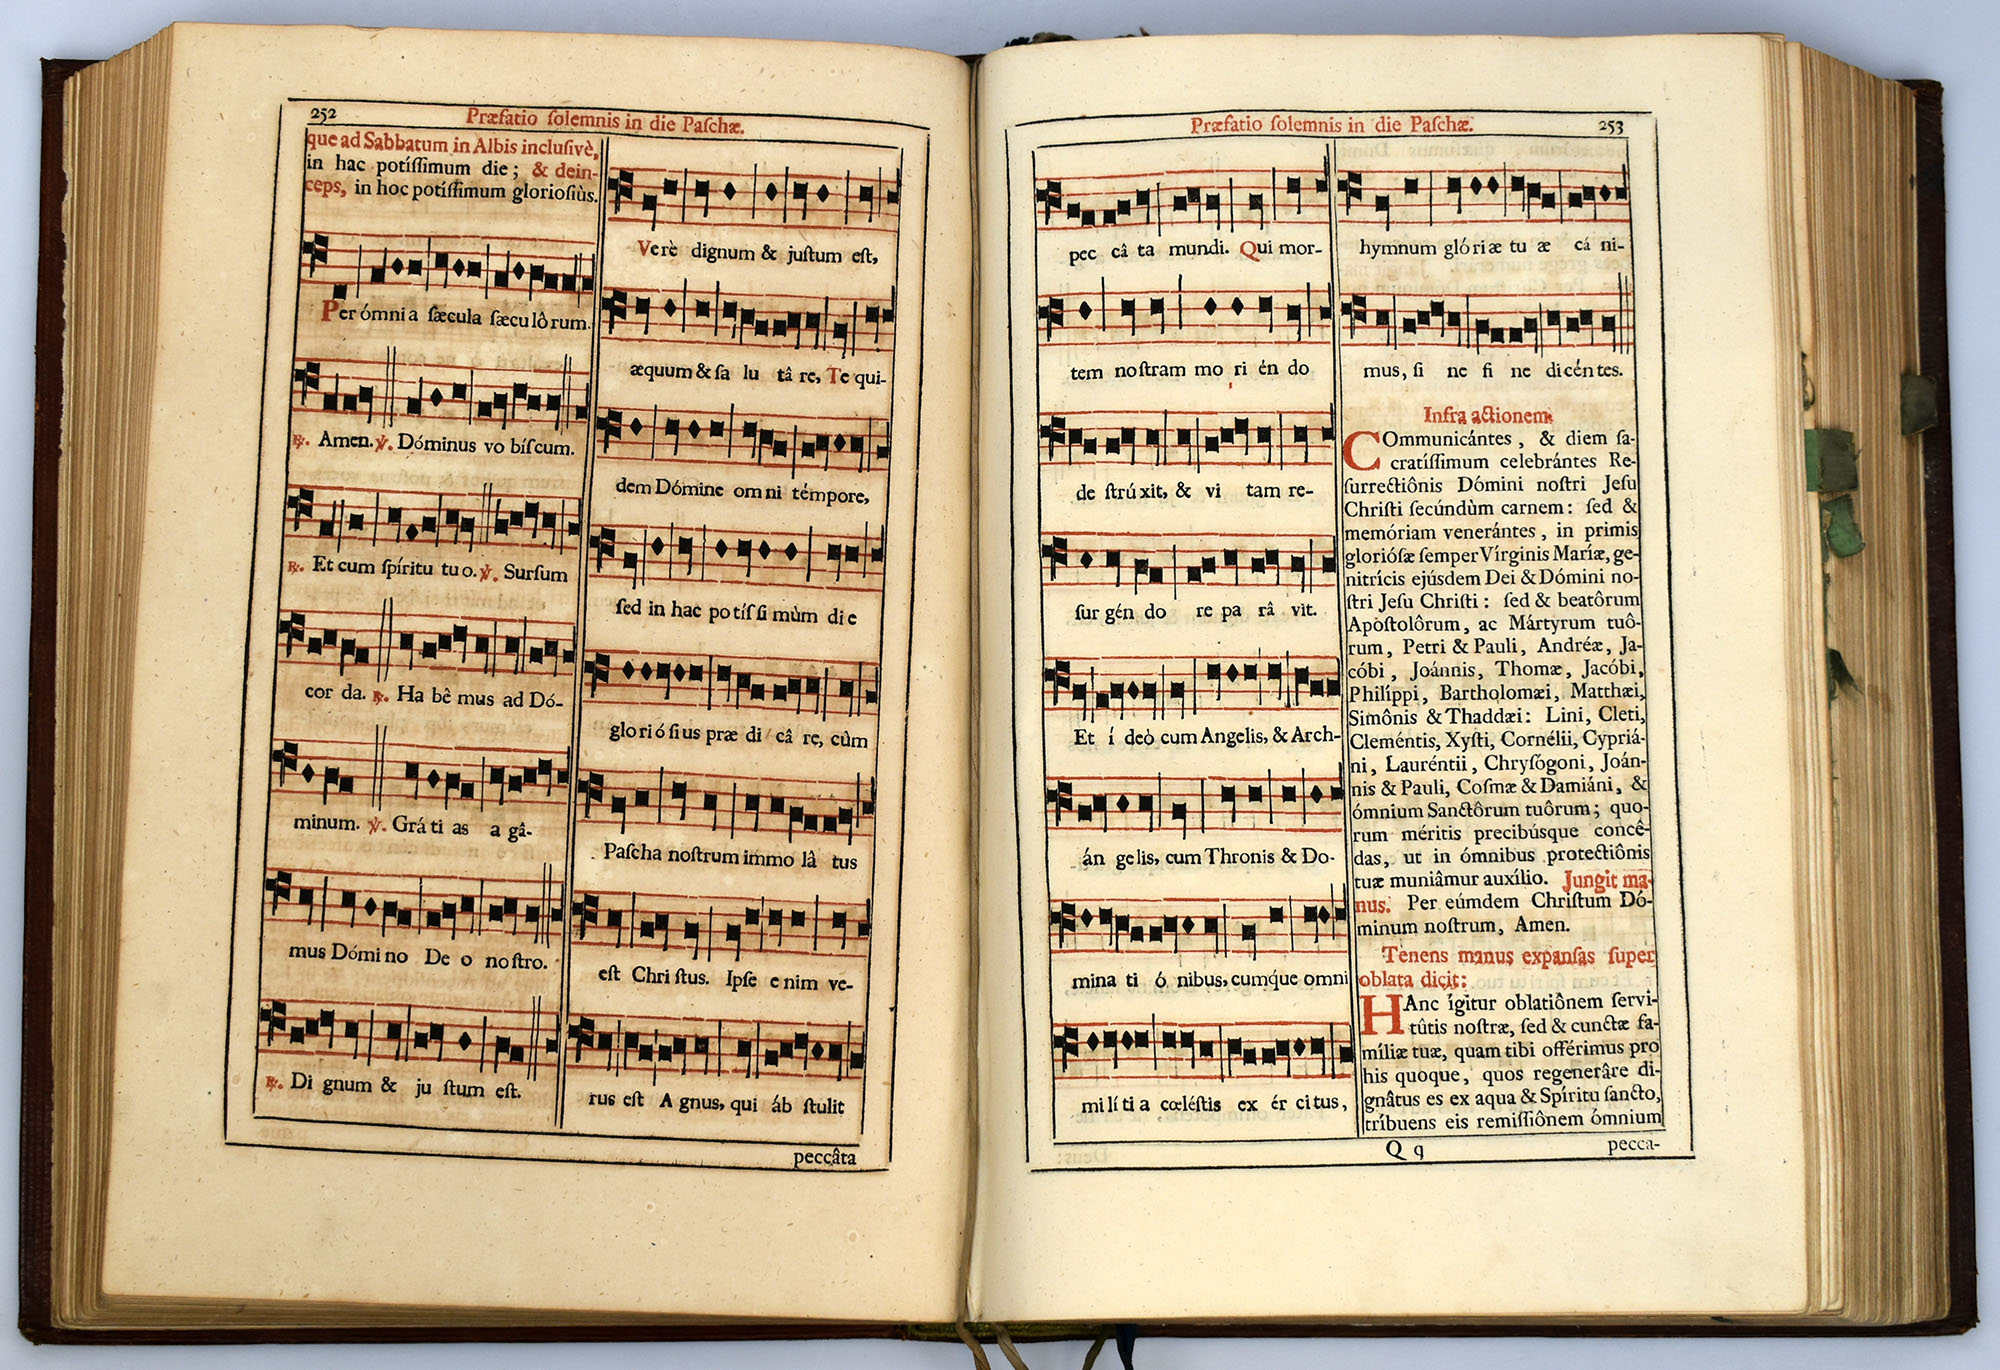 252
Præfatio ſolemnis in die Paſchæ.
que ad Sabbatum in Albis incluſivè,
in hac potíſſimum die; & dein-
ceps, in hoc potíſſimum glorioſiùs.
Per ómni a ſæcula ſæcu lô rum.
℟. Amen. ℣. Dóminus vo bíſcum.
℟. Et cum ſpíritu tu o. ℣. Surſum
cor da. ℟. Ha bê mus ad Dó-
minum. ℣. Grá ti as a gâ-
mus Dómi no De o no ſtro.
℟. Di gnum & ju ſtum eſt.
Verè dignum & juſtum eſt,
æquum & ſa lu tâ re, Te qui-
dem Dómine om ni témpore,
ſed in hac po tíſ ſi mùm di e
glo ri ó ſi us præ di câ re, cùm
Paſcha noſtrum immo lâ tus
eſt Chri ſtus. Ipſe e nim ve-
rus eſt A gnus, qui áb ſtulit
peccâta
Præfatio ſolemnis in die Paſchæ.
253
pec câ ta mundi. Qui mor-
tem noſtram mo ri én do
de ſtrú xit, & vi tam re-
ſur gén do re pa râ vit.
Et í deò cum Angelis, & Arch-
án gelis, cum Thronis & Do-
mina ti ó nibus, cumq́ue omni
mi lí ti a cœléſtis ex ér ci tus,
hymnum gló ri æ tu æ cá ni-
mus, ſi ne fi ne di cén tes.
Infra actionem.
COmmunicántes, & diem ſa-
cratíſſimum celebrántes Re-
ſurrectiônis Dómini noſtri Jeſu
Chriſti ſecúndùm carnem: ſed &
memóriam venerántes, in primis
glorióſæ ſemper Vírginis Maríæ, ge-
nitrícis ejúsdem Dei & Dómini no-
ſtri Jeſu Chriſti: ſed & beatôrum
Apoſtolôrum, ac Mártyrum tuô-
rum, Petri & Pauli, Andréæ, Ja-
cóbi, Joánnis, Thomæ, Jacóbi,
Philíppi, Bartholomæi, Matthæi,
Simônis & Thaddæi: Lini, Cleti,
Cleméntis, Xyſti, Cornélii, Cypriá-
ni, Lauréntii, Chryſógoni, Joán-
nis & Pauli, Coſmæ & Damiáni, &
ómnium Sanctôrum tuôrum; quo-
rum méritis precibúsque concê-
das, ut in ómnibus protectiônis
tuæ muniâmur auxílio. Jungit ma-
nus. Per eúmdem Chriſtum Dó-
minum noſtrum, Amen.
Tenens manus expanſas ſuper
oblata dicit:
HAnc ígitur oblatiônem ſervi-
tûtis noſtræ, ſed & cunctæ fa-
míliæ tuæ, quam tibi offérimus pro
his quoque, quos regenerâre di-
gnâtus es ex aqua & Spíritu ſancto,
tríbuens eis remiſſiônem ómnium
Q q
pecca-